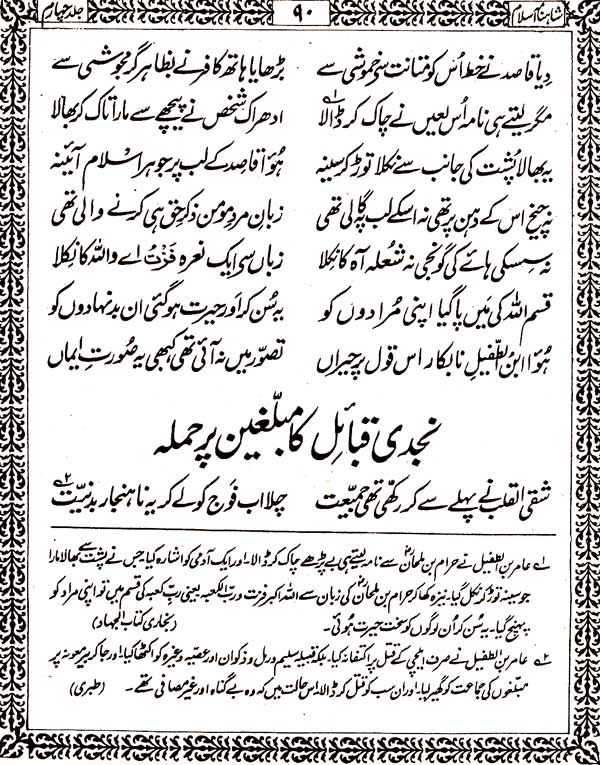 شاہنامہ اسلام ۹۰ جلد چہارم
دیا قاصد نے خط اُس کو متانت سے خموشی سے بڑھایا ہاتھ کافر نے بظاہر گرمجوشی سے
مگر لیتے ہی نامہ اُس لعیں نے چاک کر ڈالا ؎۱ ادھر اک شخص نے پیچھے سے مارا تاک کر بھالا
یہ بھالا پُشت کی جانب سے نکلا توڑ کر سینہ ہُوا قاصد کے لب پر جوہرِ اسلام آئینہ
نہ چیخ اس کے دہن پر تھی نہ اسکے لب پہ گالی تھی زبانِ مردِ مومن ذکرِ حق ہی کرنے والی تھی
نہ سسکی ہائے کی گونجی نہ شعلہ آہ کا نکلا زباں سے ایک نعرہ فُزْتُ اے واللہ کا نکلا
قسم اللہ کی مَیں پا گیا اپنی مُرادوں کو یہ سُن کر اور حیرت ہو گئی ان بد نہادوں کو
ہُوا ابنُ الطفیلِ نابکار اس قول پر حیراں تصوّر میں نہ آئی تھی کبھی یہ صُورتِ ایماں
نجدی قبائل کا مبلّغین پر حملہ
شقی القلب نے پہلے سے کر رکھی تھی جمعیّت چلا اب فوج کو لے کر یہ ناہنجار بد نیّت ؎۲
؎۱ عامر بن الطفیل نے حرام بن ملحانؓ سے نامہ لیتے ہی بے پڑھے چاک کر ڈالا۔ اور ایک آدمی کو اشارہ کیا جس نے پشت سے بھالا مارا
جو سینہ توڑ کر نکل گیا۔ نیزہ کھا کر حرام بن ملحانؓ کی زبان سے اللہ اکبر فزت و ربّ الکعبہ یعنی ربِّ کعبہ کی قسم میں تو اپنی مراد کو
پہنچ گیا۔ یہ سُن کر اُن لوگوں کو سخت حیرت ہوئی۔ (بخاری کتاب الجہاد)
؎۲ عامر بن الطفیل نے صرف ایلچی کے قتل پر اکتفا نہ کیا۔ بلکہ قبیلہ سلیم و رعل و ذکوان اور عصیہ وغیرہ کو اکٹھا کیا! اور جا کر بیر معونہ پر
مبلّغوں کی جماعت کو گھیر لیا۔ اور ان سب کو قتل کر ڈالا۔ اس حالت میں کہ وہ بے گناہ اور غیر مصافی تھے۔ (طبری)